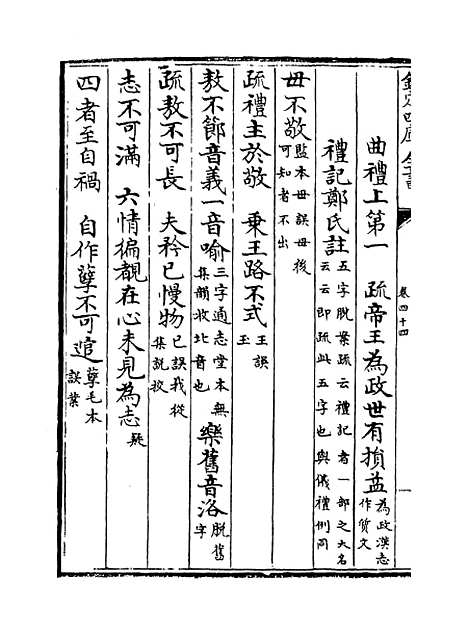 欽定四庫全書
卷四十四
一
曲禮上第一　疏帝王為政世有損益為政漢志作質文
禮記鄭氏註五字脫案疏云禮記者一部之大名云云即疏此五字也與儀禮例同
毋不敬監本毋誤母後可知者不出
疏禮主於敬　乗王路不式王誤玉
敖不節音義一音喻三字通志堂本無集韻收此音也　樂舊音洛脫舊字
疏敖不可長　夫矜已慢物已誤我從集說挍
志不可滿　六情徧覩在心未見為志疑
四者至自禍　自作孽不可逭孽毛本誤業